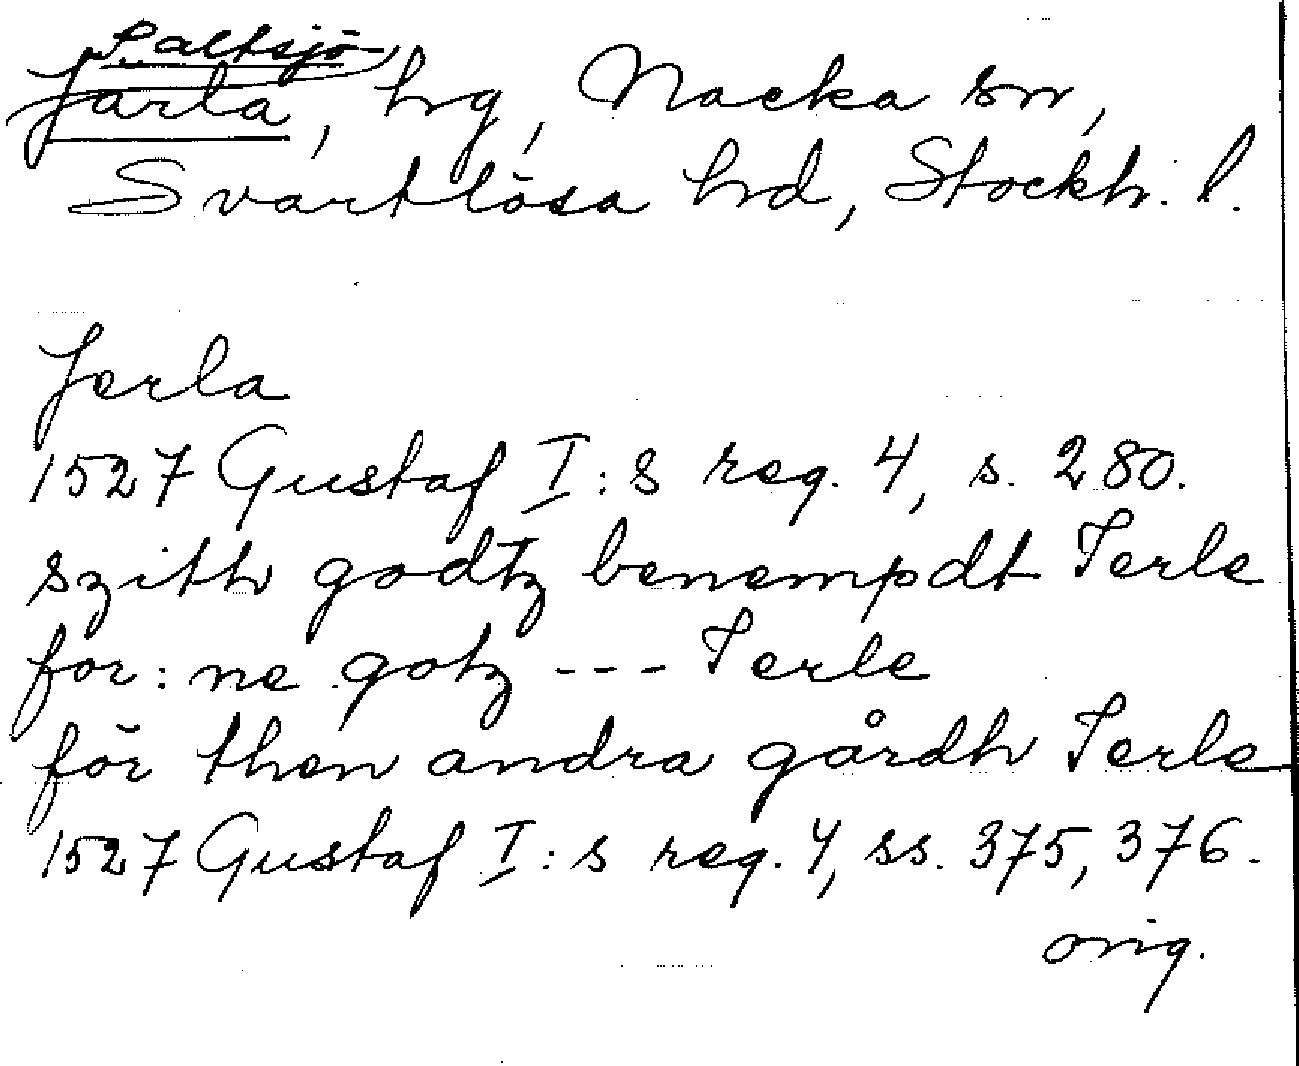 Saltsjö-
Järla, hrg, Nacka sn,
Svartlösa hrd, Stockh. l.
Jerla
1527 Gustaf I:s reg. 4, s. 280.
szith godtz benempdt Ierle
for:ne gotz --- Ierle
för then andra gårdh Ierle
1527 Gustaf I:s reg. 4, ss. 375, 376.
orig.